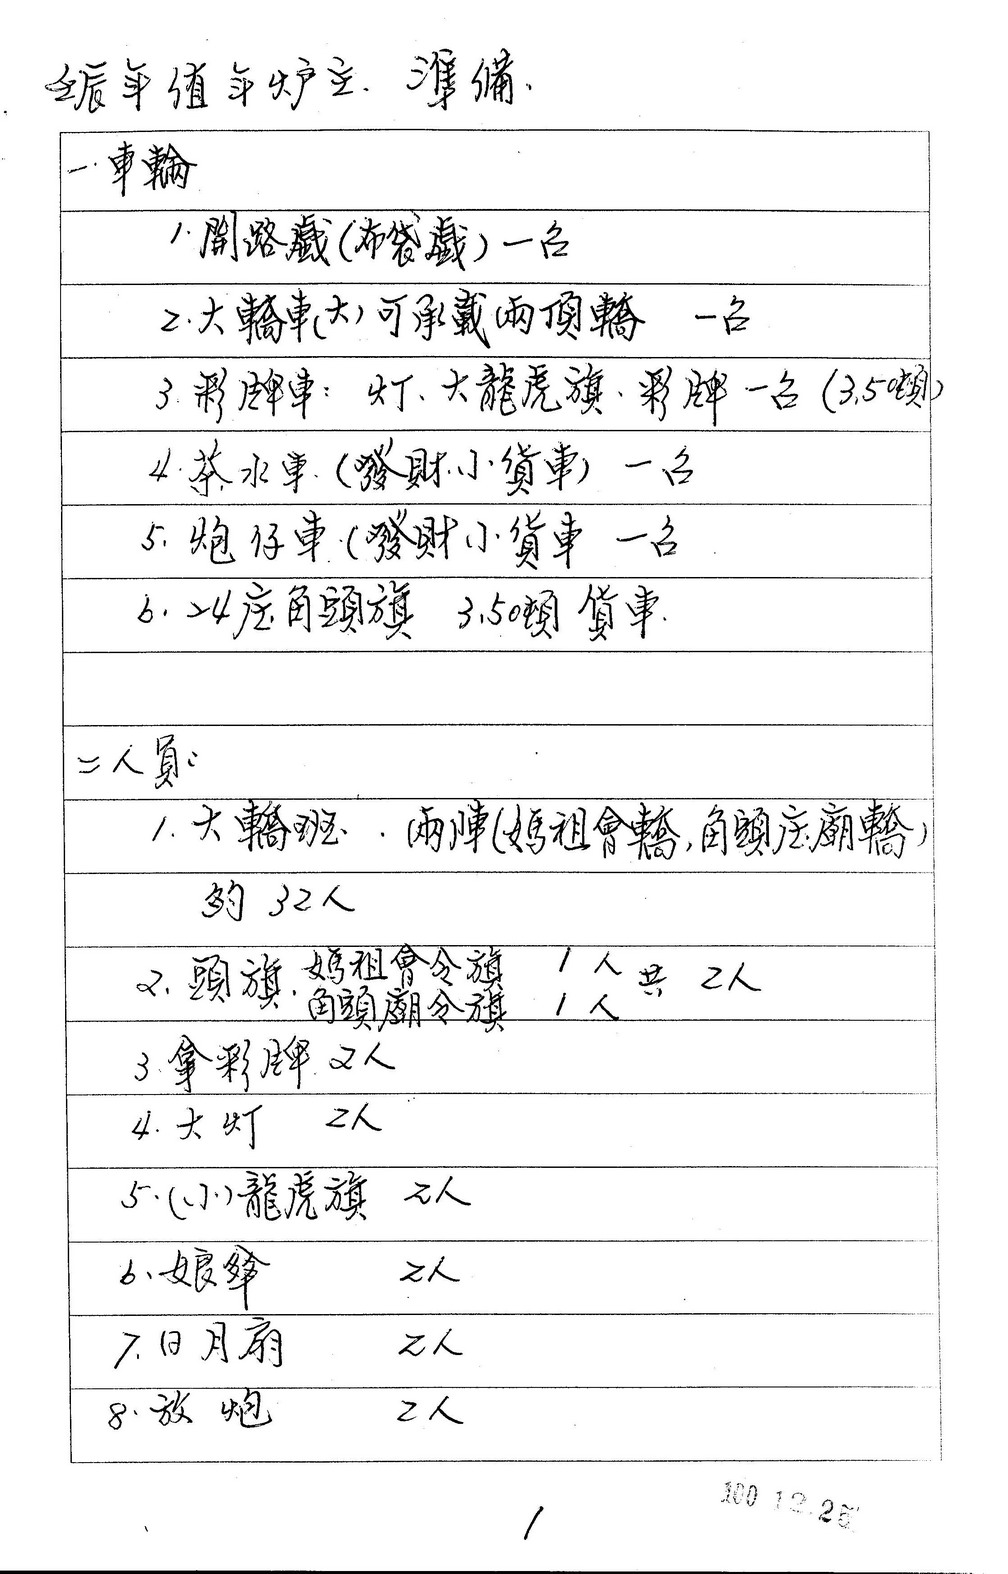 壬辰年值年炉主. 準備.
一. 車輪
1. 開路戲(布袋戲) 一台
2. 大轎車(大) 可承載兩頂轎 一台
3. 彩牌車: 灯、大龍虎旗、彩牌 一台 (3.50頓)
4. 茶水車. (發財小貨車) 一台
5. 炮仔車. (發財小貨車 一台
6. 24庄角頭旗 3.50頓 貨車.
二人員:
1. 大轎班. . 兩陣(媽祖會轎,角頭庄廟轎)
約 32人
2. 頭旗. 媽祖會令旗 1人 共 2人
角頭廟令旗 1人
3. 拿彩牌 2人
4. 大灯 2人
5. (小)龍虎旗 2人
6、娘傘 2人
7. 日月扇 2人
8. 放炮 2人
100 12.25
1